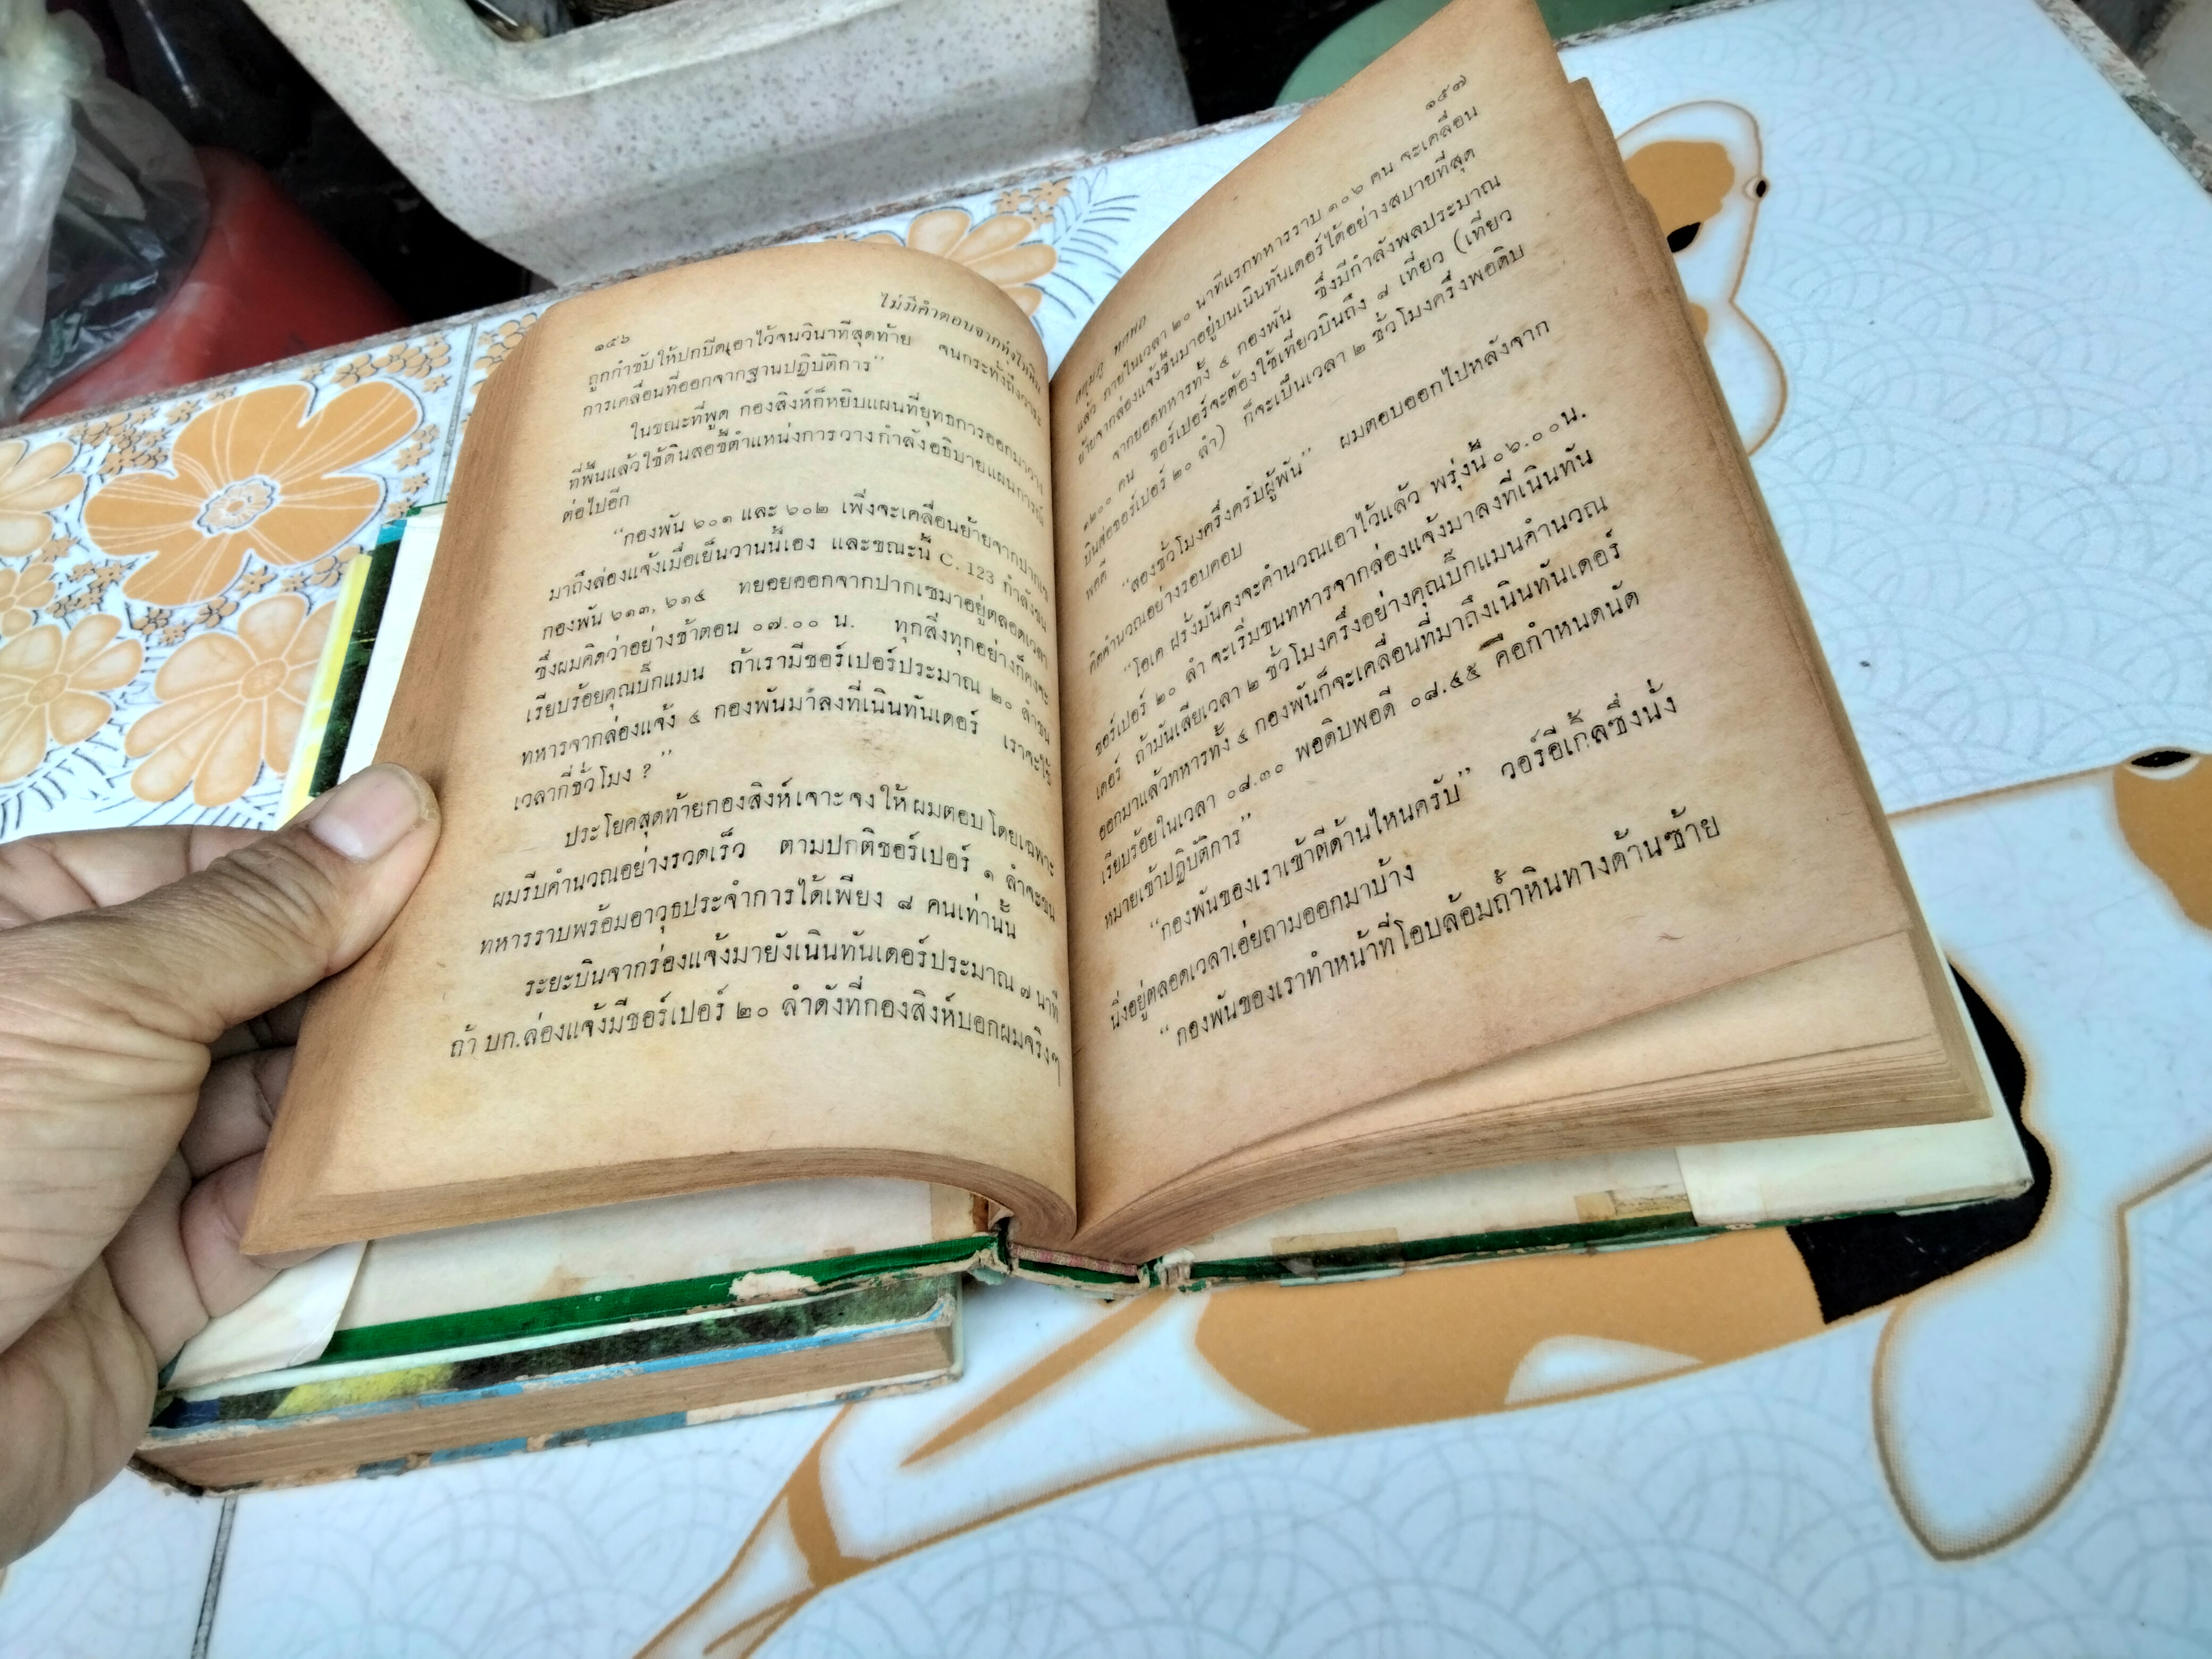 ๑๕๖
ไม่มีคำตอบจากทุ่งไหหิน
ถูกกำชับให้ปกปิดเอาไว้จนวินาทีสุดท้าย จนกระทั่งถึงวาระ
การเคลื่อนที่ออกจากฐานปฏิบัติการ”
ในขณะที่พูด กองสิงห์ก็หยิบแผนที่ยุทธการออกมาวาง
ที่พื้นแล้วใช้ดินสอชี้ตำแหน่งการวางกำลังอธิบายแผนการณ์
ต่อไปอีก
“กองพัน ๖๐๑ และ ๖๐๒ เพิ่งจะเคลื่อนย้ายจากปากเซ
มาถึงล่องแจ้งเมื่อเย็นวานนี้เอง และขณะนี้ C. 123 กำลังขน
กองพัน ๖๑๓, ๖๑๔ ทยอยออกจากปากเซมาอยู่ตลอดเวลา
ซึ่งผมคิดว่าอย่างช้าตอน ๐๗.๐๐ น. ทุกสิ่งทุกอย่างก็คงจะ
เรียบร้อยคุณบิ๊กแมน ถ้าเรามีชอร์เปอร์ประมาณ ๒๐ ลำขน
ทหารจากล่องแจ้ง ๔ กองพันมาลงที่เนินทันเดอร์ เราจะใช้
เวลากี่ชั่วโมง ? ”
ประโยคสุดท้ายกองสิงห์เจาะจงให้ผมตอบโดยเฉพาะ
ผมรีบคำนวณอย่างรวดเร็ว ตามปกติชอร์เปอร์ ๑ ลำจะขน
ทหารราบพร้อมอาวุธประจำการได้เพียง ๘ คนเท่านั้น
ระยะบินจากร่องแจ้งมายังเนินทันเดอร์ประมาณ ๗ นาที
ถ้า บก.ล่องแจ้งมีชอร์เปอร์ ๒๐ ลำดังที่กองสิงห์บอกผมจริงๆ
๑๕๗
แล้ว ภายในเวลา ๒๐ นาทีแรกทหารราบ ๑๐๖ คน จะเคลื่อน
ย้ายจากล่องแจ้งขึ้นมาอยู่บนเนินทันเดอร์ได้อย่างสบายที่สุด
จากยอดทหารทั้ง ๔ กองพัน ซึ่งมีกำลังพลประมาณ
๑๒๐๐ คน ชอร์เปอร์จะต้องใช้เที่ยวบินถึง ๘ เที่ยว (เที่ยว
บินต่อชอร์เปอร์ ๒๐ ลำ) ก็จะเป็นเวลา ๒ ชั่วโมงครึ่งพอดิบ
พอดี
“สองชั่วโมงครึ่งครับผู้พัน” ผมตอบออกไปหลังจาก
คิดคำนวณอย่างรอบคอบ
“โอเค ฝรั่งมันคงจะคำนวณเอาไว้แล้ว พรุ่งนี้ ๐๖.๐๐ น.
ชอร์เปอร์ ๒๐ ลำ จะเริ่มขนทหารจากล่องแจ้งมาลงที่เนินทัน
เดอร์ ถ้ามันเสียเวลา ๒ ชั่วโมงครึ่งอย่างคุณบิ๊กแมนคำนวณ
ออกมาแล้วทหารทั้ง ๔ กองพันก็จะเคลื่อนที่มาถึงเนินทันเดอร์
เรียบร้อยในเวลา ๐๘.๓๐ พอดิบพอดี ๐๘.๔๕ คือกำหนดนัด
หมายเข้าปฏิบัติการ”
“กองพันของเราเข้าตีด้านไหนครับ” วอร์อีเกิ้ลซึ่งนั่ง
นิ่งอยู่ตลอดเวลาเอ่ยถามออกมาบ้าง
“ กองพันของเราทำหน้าที่โอบล้อมถ้ำหินทางด้านซ้าย